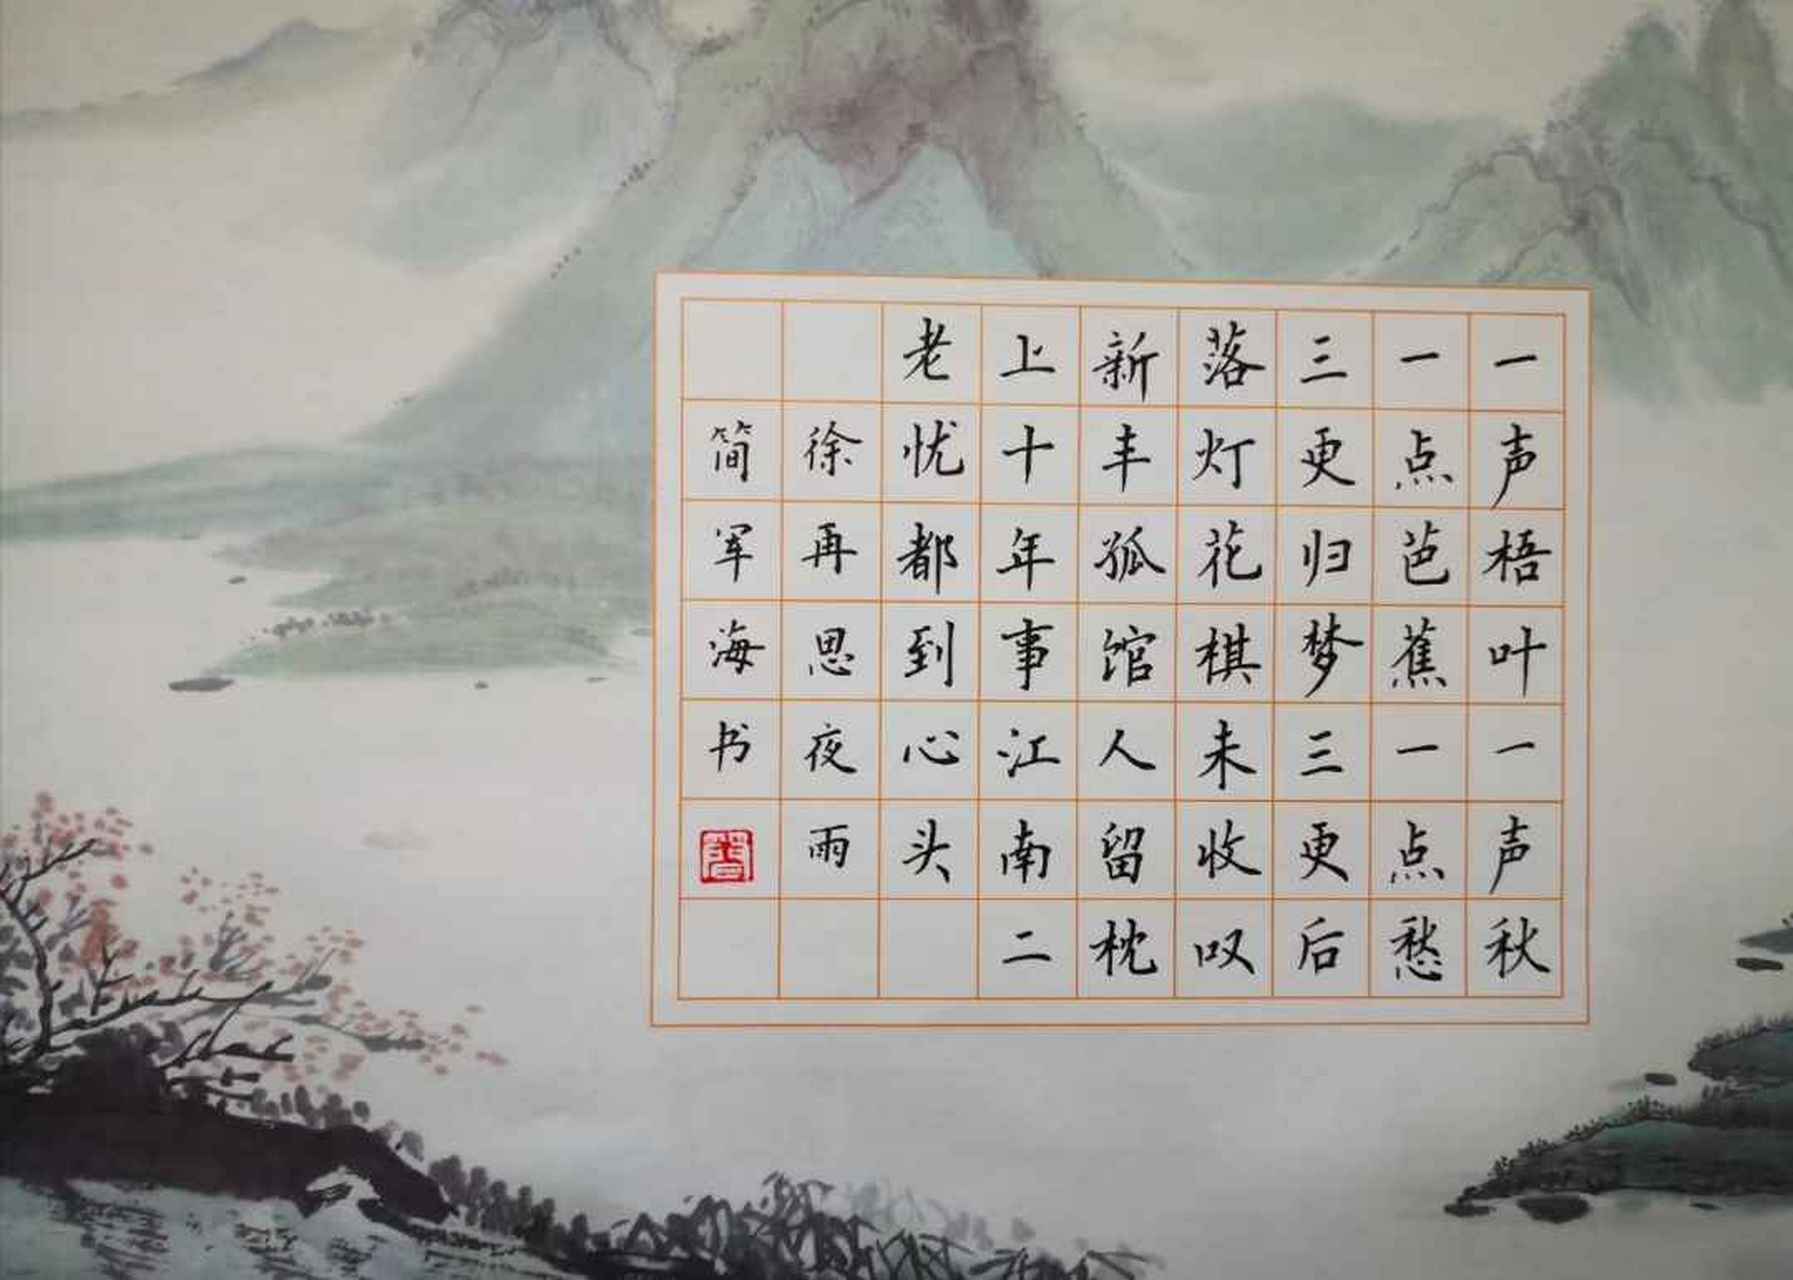 一声梧叶一声秋
一点芭蕉一点愁
三更归梦三更后
落灯花棋未收叹
新丰孤馆人留枕
上十年事江南二
老忧都到心头
徐再思夜雨
简军海书